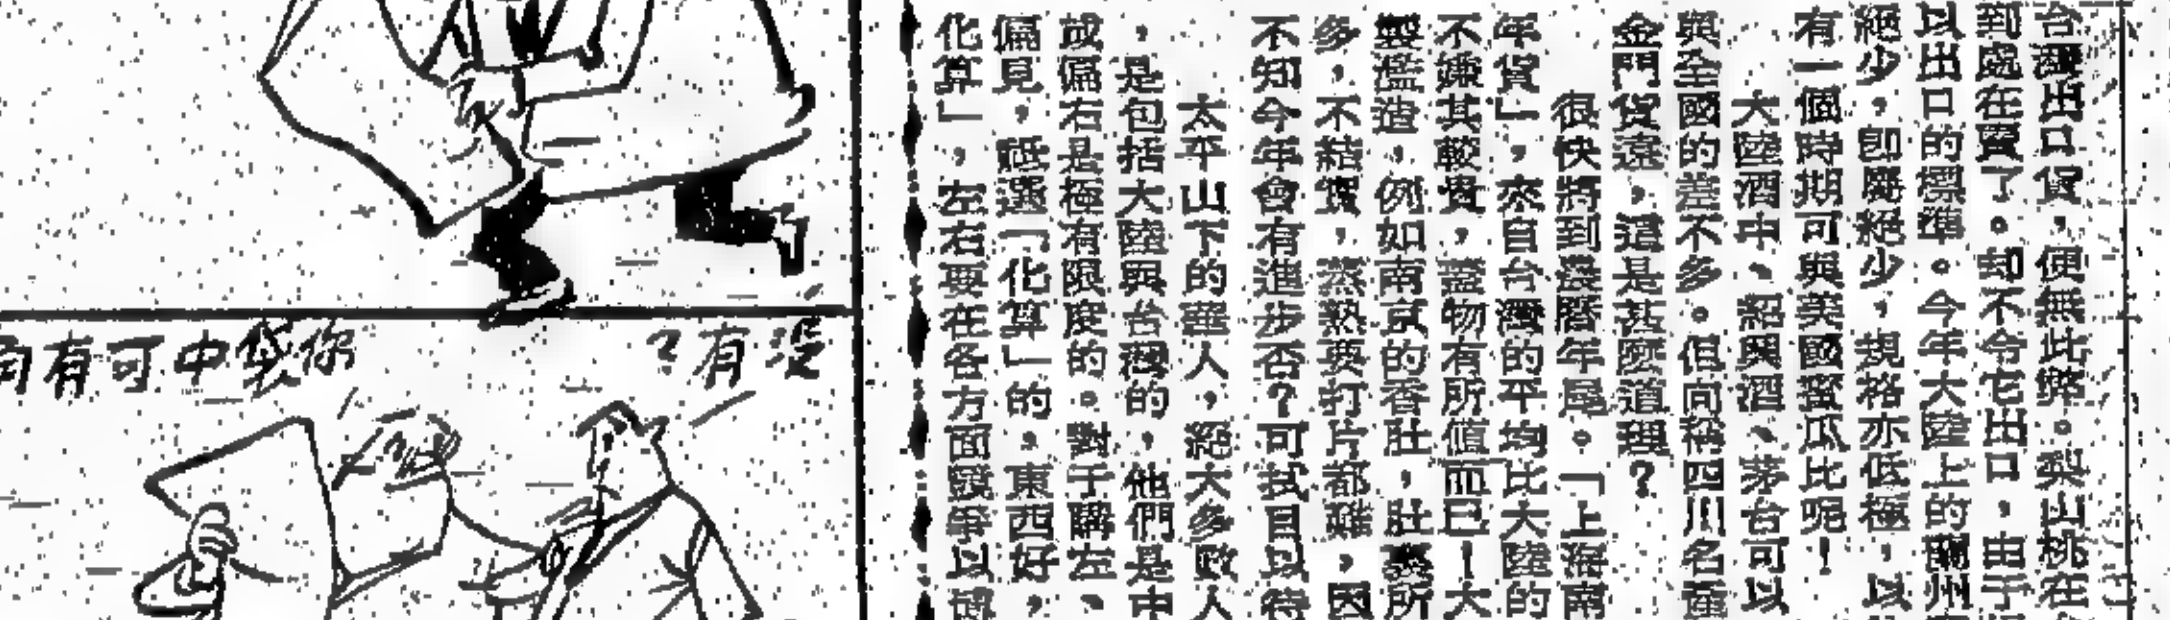 台灣出口貨，便無此弊。梨山桃在
到處在賣了。却不令它出口，由于
以出口的標準。今年大陸上的蘭州
絕少，卽屬絕少，規格亦低極，以
有一個時期可與美國蜜瓜比呢！
大陸酒中、紹興酒、茅台可以
與全國的差不多。但向稱四川名產
金門貨遠，這是甚麼道理？
很快將到農曆年尾。「上海南
年貨」，來自台灣的平均比大陸的
不嫌其較貴，蓋物有所值而已！大
製濫造，例如南京的香肚，肚裏所
多，不結實，蒸熟要打片都難，因
不知今年會有進步否？可拭目以待
太平山下的華人，絕大多數人
，是包括大陸與台灣的，他們是中
或偏右是極有限度的。對于購左、
偏見，祗選「化算」的。東西好，
化算」，左右要在各方面競爭以博
沒有？
你袋中可有向